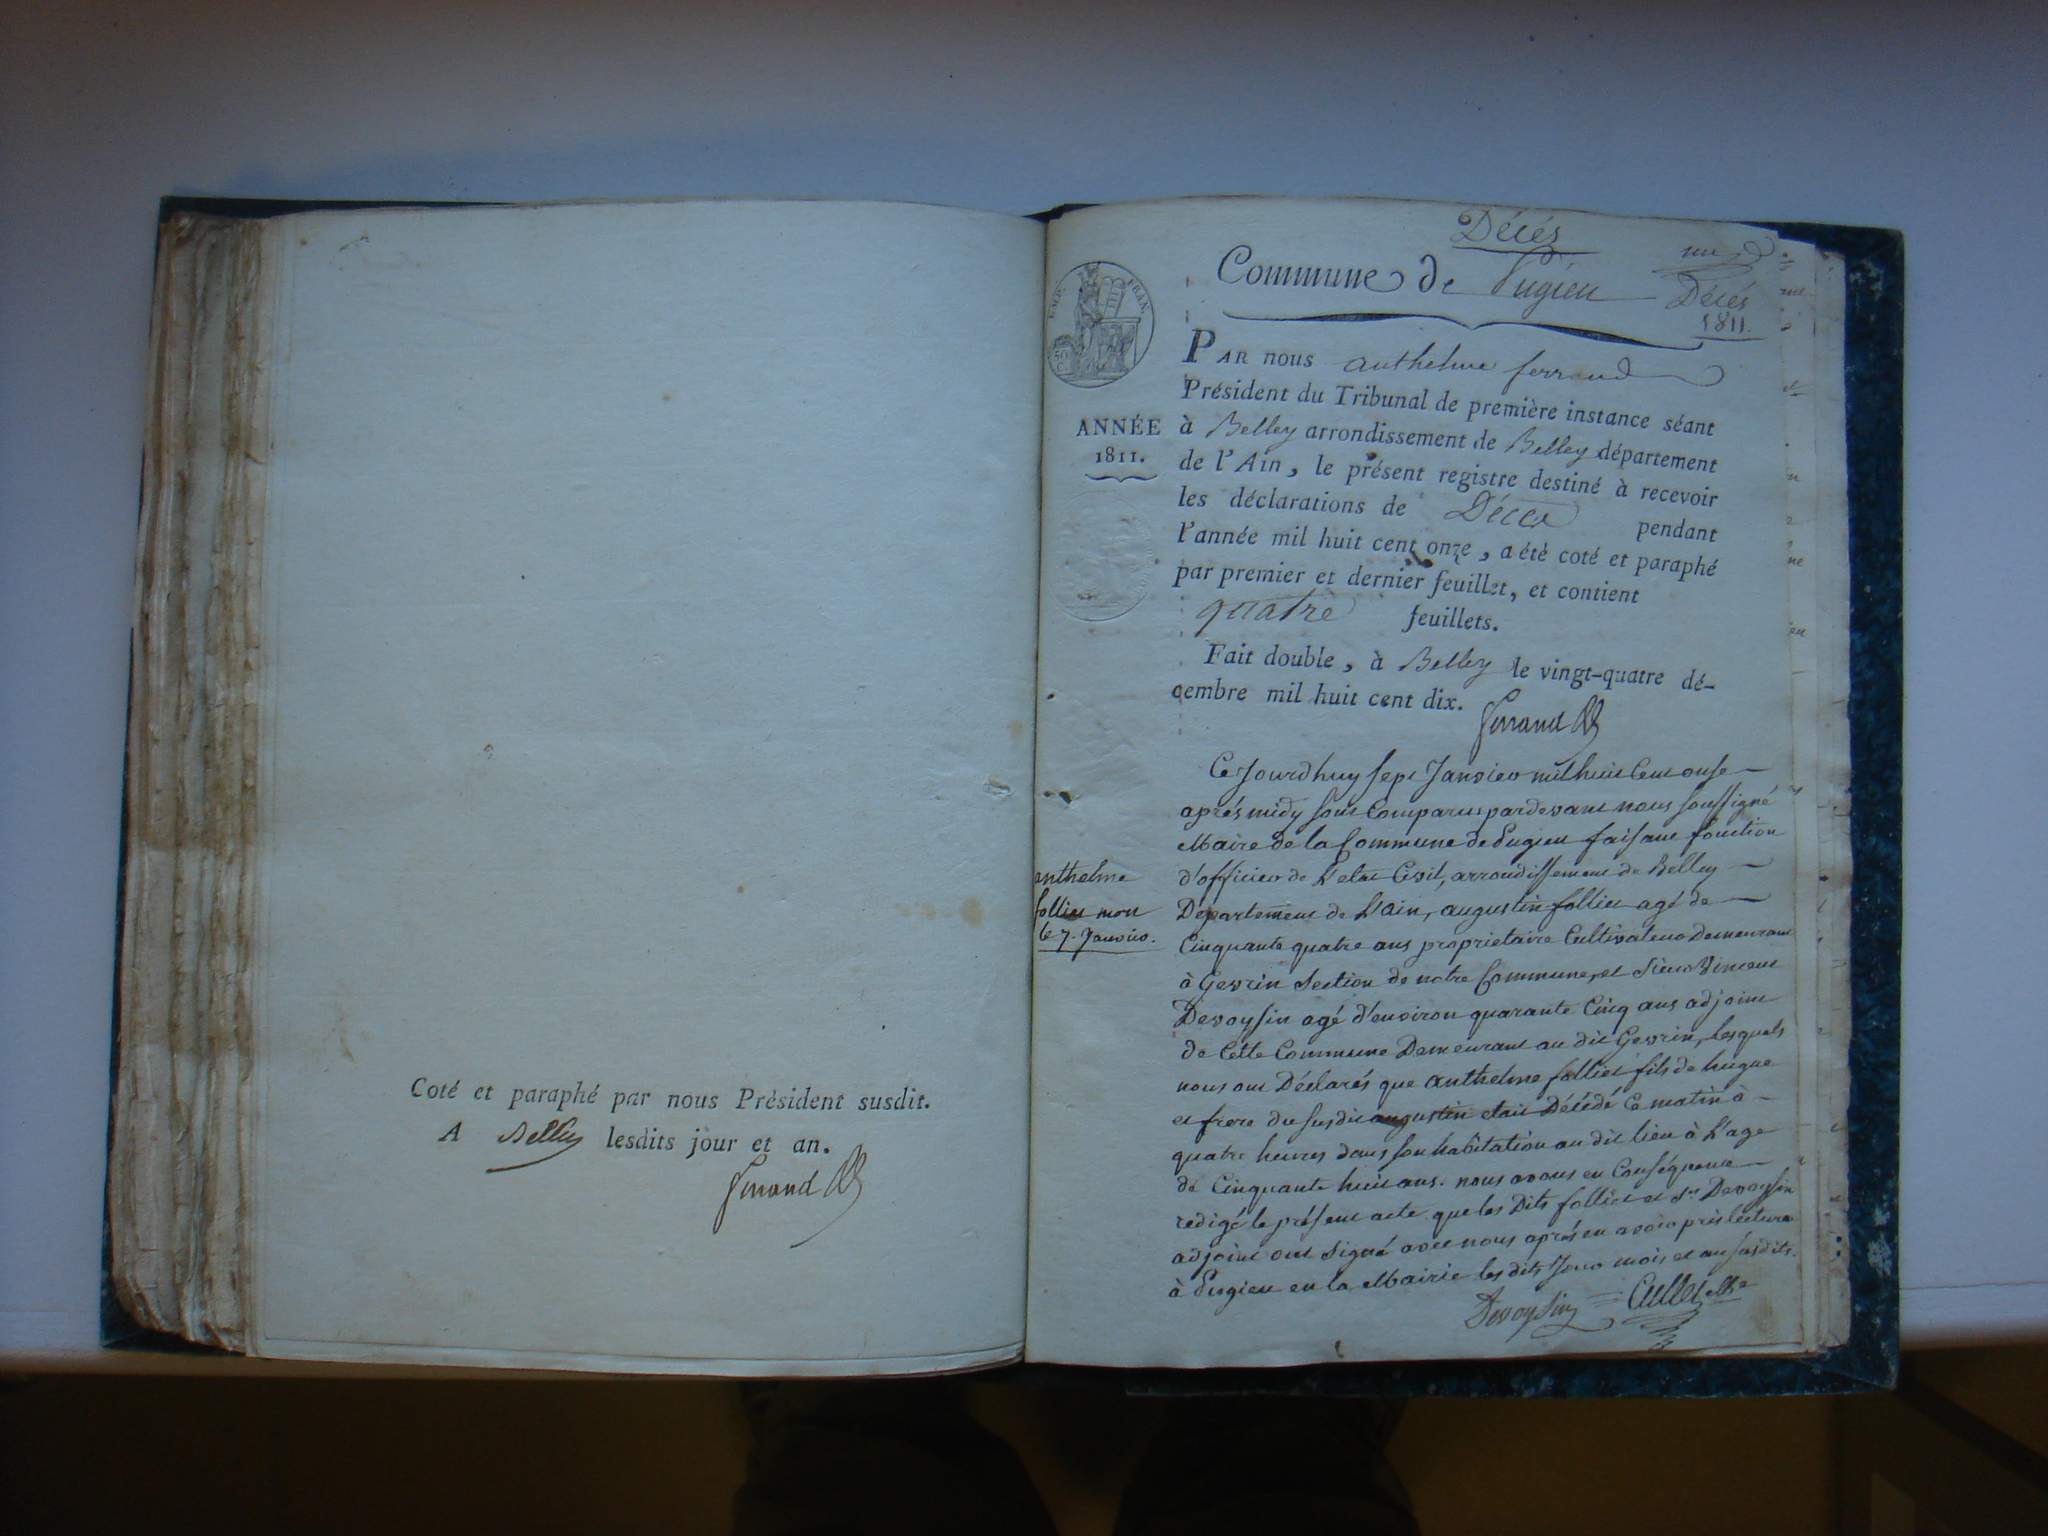 Coté et paraphé par nous Président susdit.
A Belley lesdits jour et an.
Ferrand
Décés
un
Commune de Pugieu
Décés
1811.
EMP. FRAN.
50
C.
PAR nous anthelme ferrand
Président du Tribunal de première instance séant
ANNÉE
1811.
à Belley arrondissement de Belley département
de l'Ain, le présent registre destiné à recevoir
les déclarations de Décès pendant
l'année mil huit cent onze, a été coté et paraphé
par premier et dernier feuillet, et contient
quatre feuillets.
Fait double, à Belley le vingt-quatre dé-
cembre mil huit cent dix.
Ferrand
anthelme
folliet mort
le 7. Janvier.
Ce Jourdhuy sept Janvier mil huit Cent onse
aprés midy sont Comparus pardevant nous soussigné
Maire de la Commune de Pugieu faisant fonction
d'officier de L'etat Civil, arrondissement de Belley
Departement de L'ain, augustin folliet agé de
Cinquante quatre ans proprietaire Cultivateur Demeurant
à Gevrin Section de notre Commune, et Sieur Vincent
Devoysin agé d'environ quarante Cinq ans adjoint
de Cette Commune Demeurant au dit Gevrin, Lesquels
nous ont Déclarés que anthelme folliet fils de hugue
et frere du susdit augustin etait Décédé Ce matin à
quatre heures dans son habitation au dit lieu à L'age
de Cinquante huit ans. nous avons en Conséquence
redigé le présent acte que les Dits folliet et Sr. Devoysin
adjoint ont Signé avec nous aprés en avoir pris lecture
à Pugieu en la Mairie les dits Jour mois et an susdits.
Devoysin Cullet Me